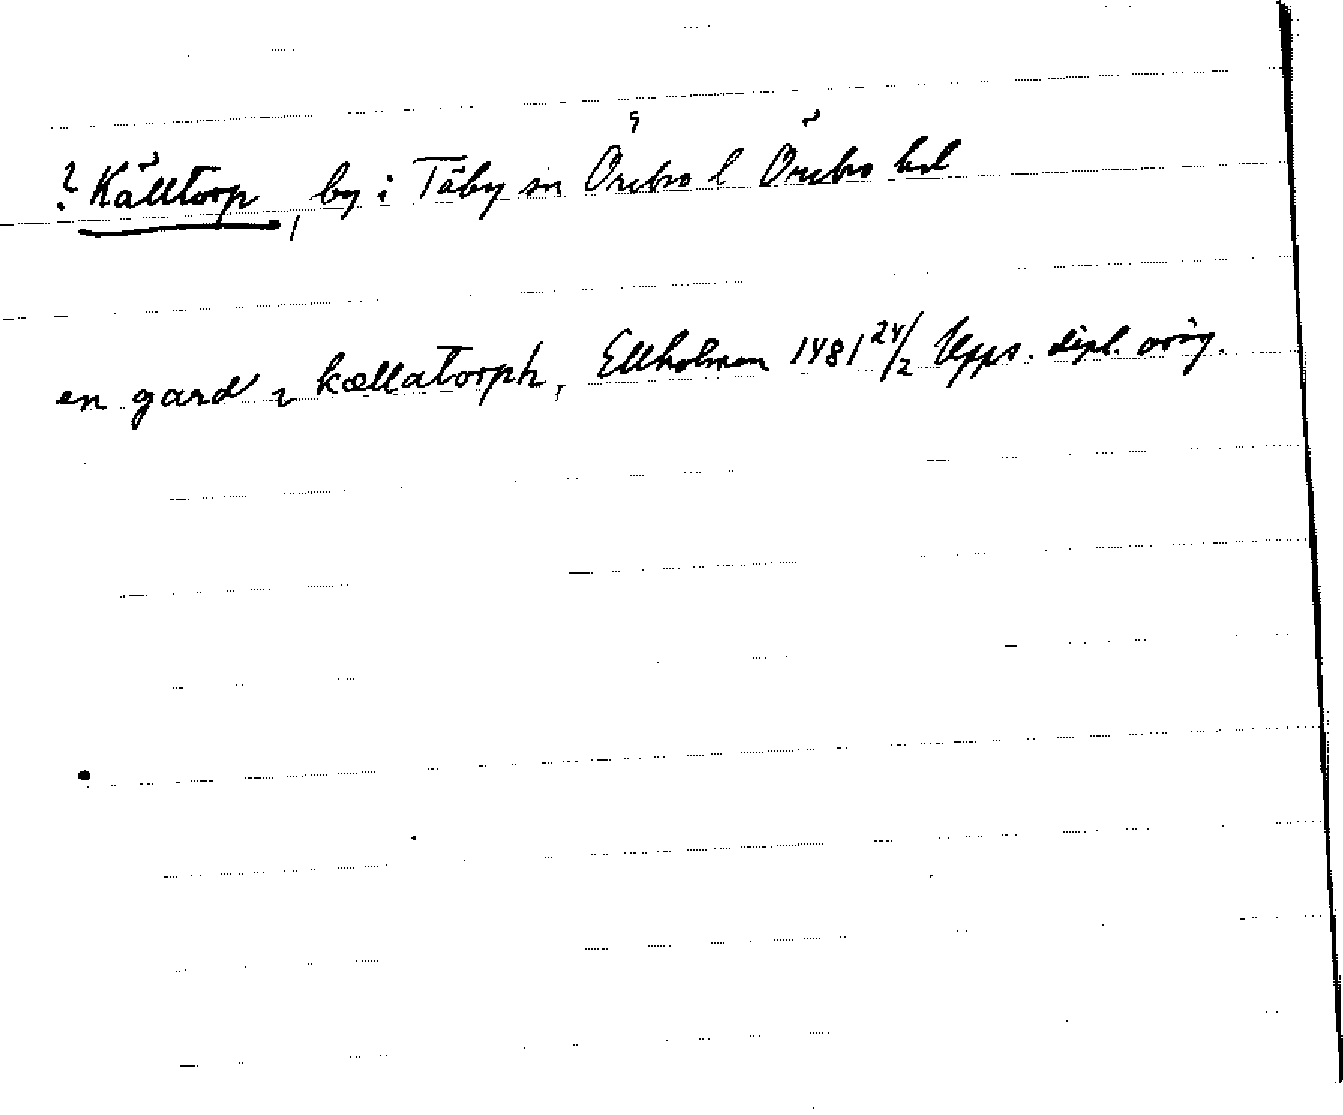 ? Källtorp, by i Täby sn Örebro l Örebro hd
en gard i kællatorph, Ellholmen 1481 24/2 Upps. dipl. orig.